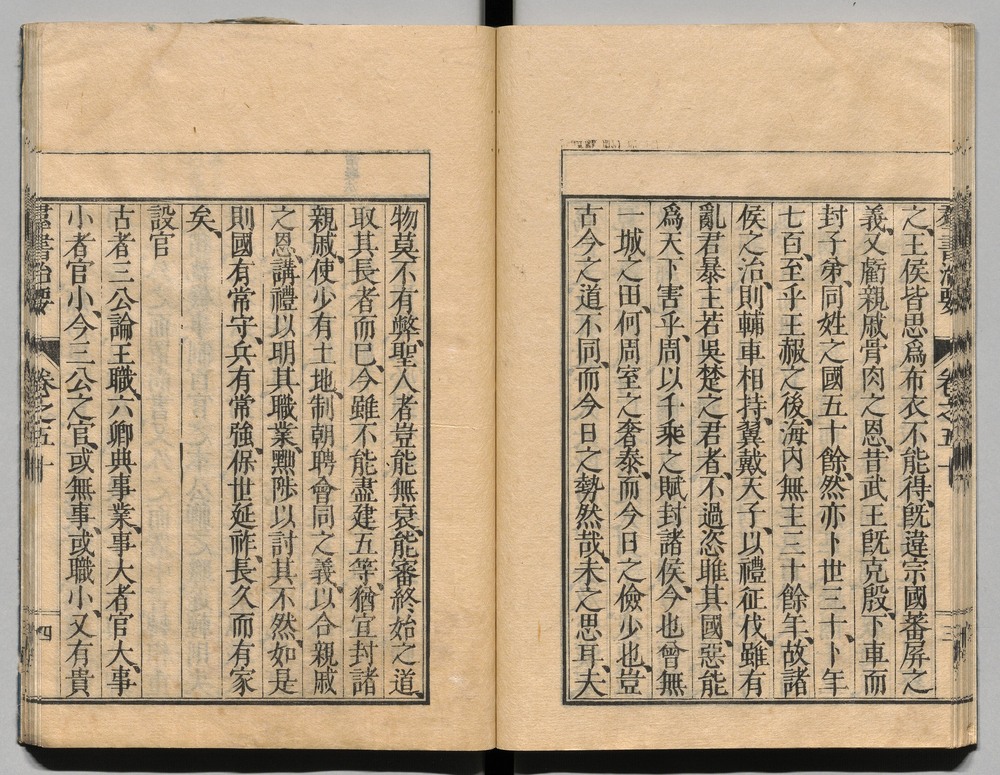 羣書治要 卷之五十 三
之王侯皆思爲布衣不能得、旣違宗國蕃屏之
義、又虧親戚骨肉之恩、昔武王旣克殷、下車而
封子弟、同姓之國五十餘、然亦卜世三十、卜年
七百、至乎王赧之後、海內無主三十餘年、故諸
侯之治、則輔車相持、翼戴天子、以禮征伐、雖有
亂君暴主若吳楚之君者、不過恣睢其國、惡能
爲天下害乎、周以千乘之賦封諸侯、今也曾無
一城之田、何周室之奢泰、而今日之儉少也、豈
古今之道不同、而今日之勢然哉、未之思耳、夫
物莫不有弊、聖人者豈能無衰、能審終始之道、
取其長者而已、今雖不能盡建五等、猶宜封諸
親戚、使少有土地、制朝聘會同之義、以合親戚
之恩、講禮以明其職業、黜陟以討其不然、如是
則國有常守、兵有常強、保世延祚、長久而有家
矣、
設官
古者三公論王職、六卿典事業、事大者官大、事
小者官小、今三公之官、或無事、或職小、又有貴
羣書治要 卷之五十 四